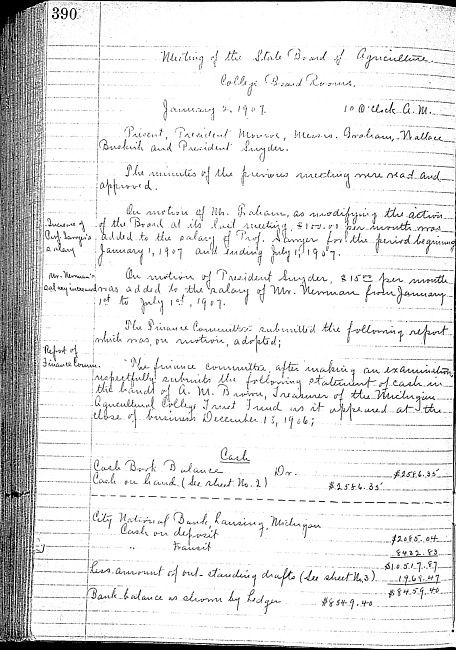 390
Meeting of the State Board of Agriculture.
College Board Rooms.
January 2, 1907. 10 O'clock A.M.
Present, President Monroe, Messrs. Graham, Wallace
and President Snyder.
The minutes of the previous meeting were read and
approved.
Increase of
Prof. Sawyer's
salary
On motion of Mr. Graham, as modifying the action
of the Board at its last meeting, $100.00 per month was
added to the salary of Prof. Sawyer for the period beginning
January 1, 1907 and ending July 1, 1907.
Mr. Newman's
salary increased
On motion of President Snyder, $15.00 per month
was added to the salary of Mr. Newman from January
1st to July 1st, 1907.
The Finance Committee submitted the following report
which was, on motion, adopted;
Report of
Finance Comm.
"The finance committee, after making an examination,
respectfully submits the following statement of cash in
the hands of A. M. Brown, Treasurer of the Michigan
Agricultural College Trust Fund as it appeared at the
close of business December 13, 1906;
Cash
Cash Book Balance Dr. $2586.35
Cash on hand (See sheet No. 2) $2586.35
City National Bank, Lansing, Michigan
Cash on deposit $2085.04
" " transit 8432.83
$10517.87
Less amount of out-standing drafts (See sheet No 3) 1968.47
$8459.40
Bank balance as shown by Ledger $8549.40